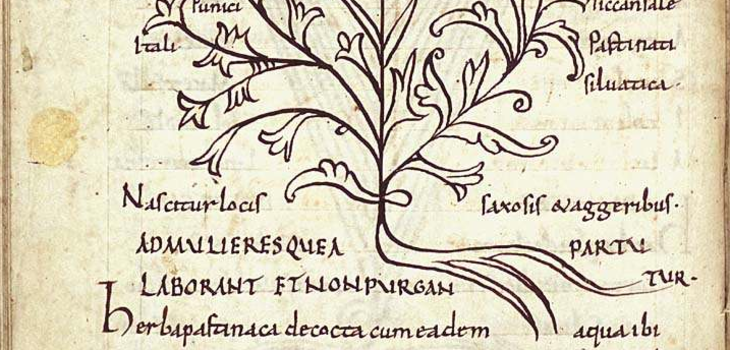 punici siccansale
Itali Pastinati
silvatica.
Nascitur locis saxosis & aggeribus.
AD MULIERES QUE A PARTU
LABORANT ET NON PURGANTUR.
herba pastinaca decocta cum eadem aqua ibi